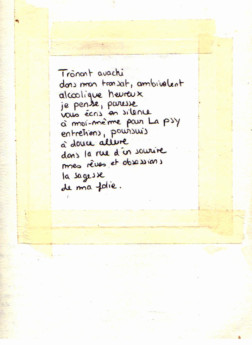 Trônant avachi
dans mon transat, ambivalent
alcoolique heureux
je pense, paresse
vous écris en silence
à moi-même pour La psy
entretiens, poursuis
à douce allure
dans la rue d'un sourire
mes rêves et obsessions
la sagesse
de ma folie.